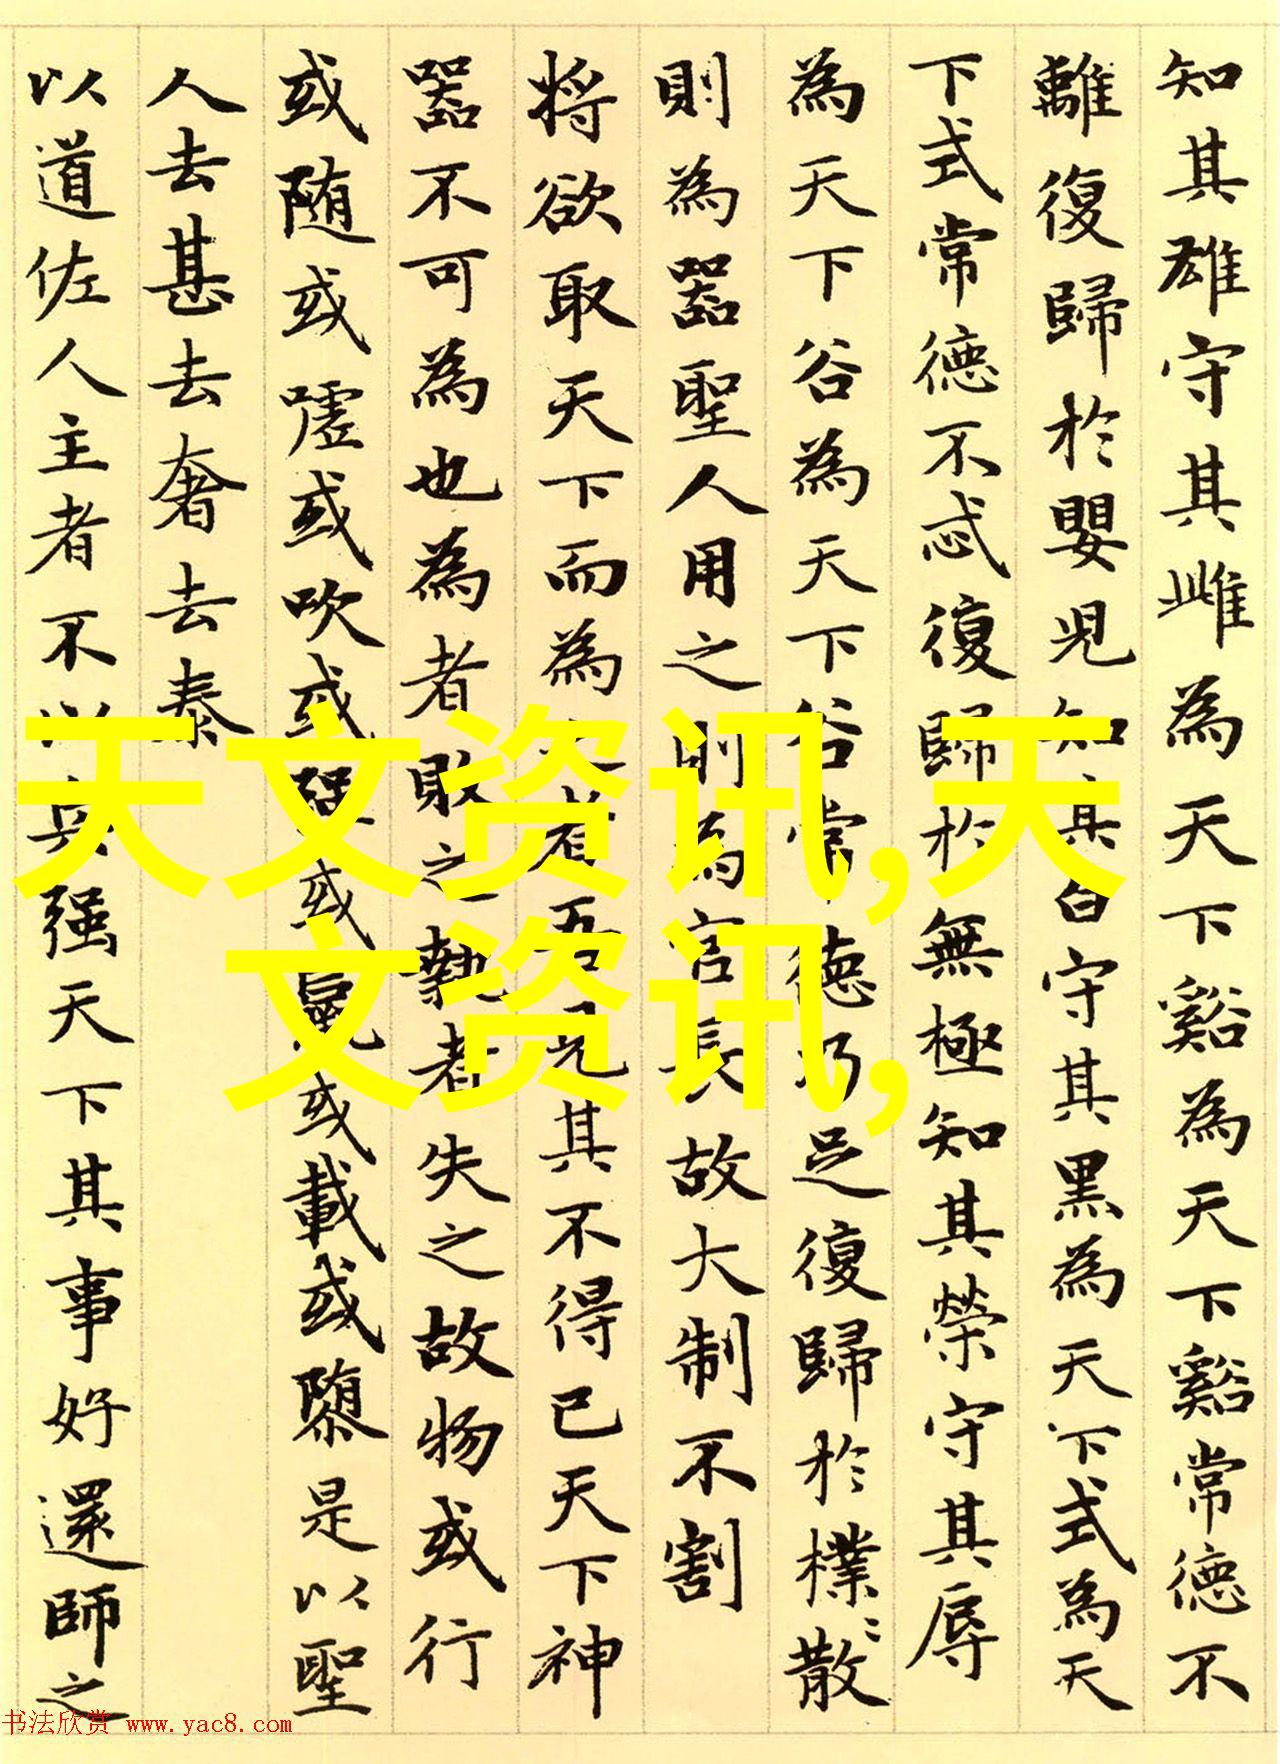 知其雄守其雌為天下谿為天下谿常德不
離復歸於嬰児知其白守其黒為天下式為天
下式常德不忒復歸於無極知其榮守其辱
為天下谷為天下谷常德乃足復歸於樸〻散
則為器聖人用之則為官長故大制不割
将欲取天下而為之者吾見其不得已天下神
器不可為也為者敗之執者失之故物或行
或随或嘘或吹或强或羸或載或隳是以聖
人去甚去奢去泰
以道佐人主者不以兵强天下其事好還師之
天文资讯,天
文资讯,
书法欣赏 www.yac8.com